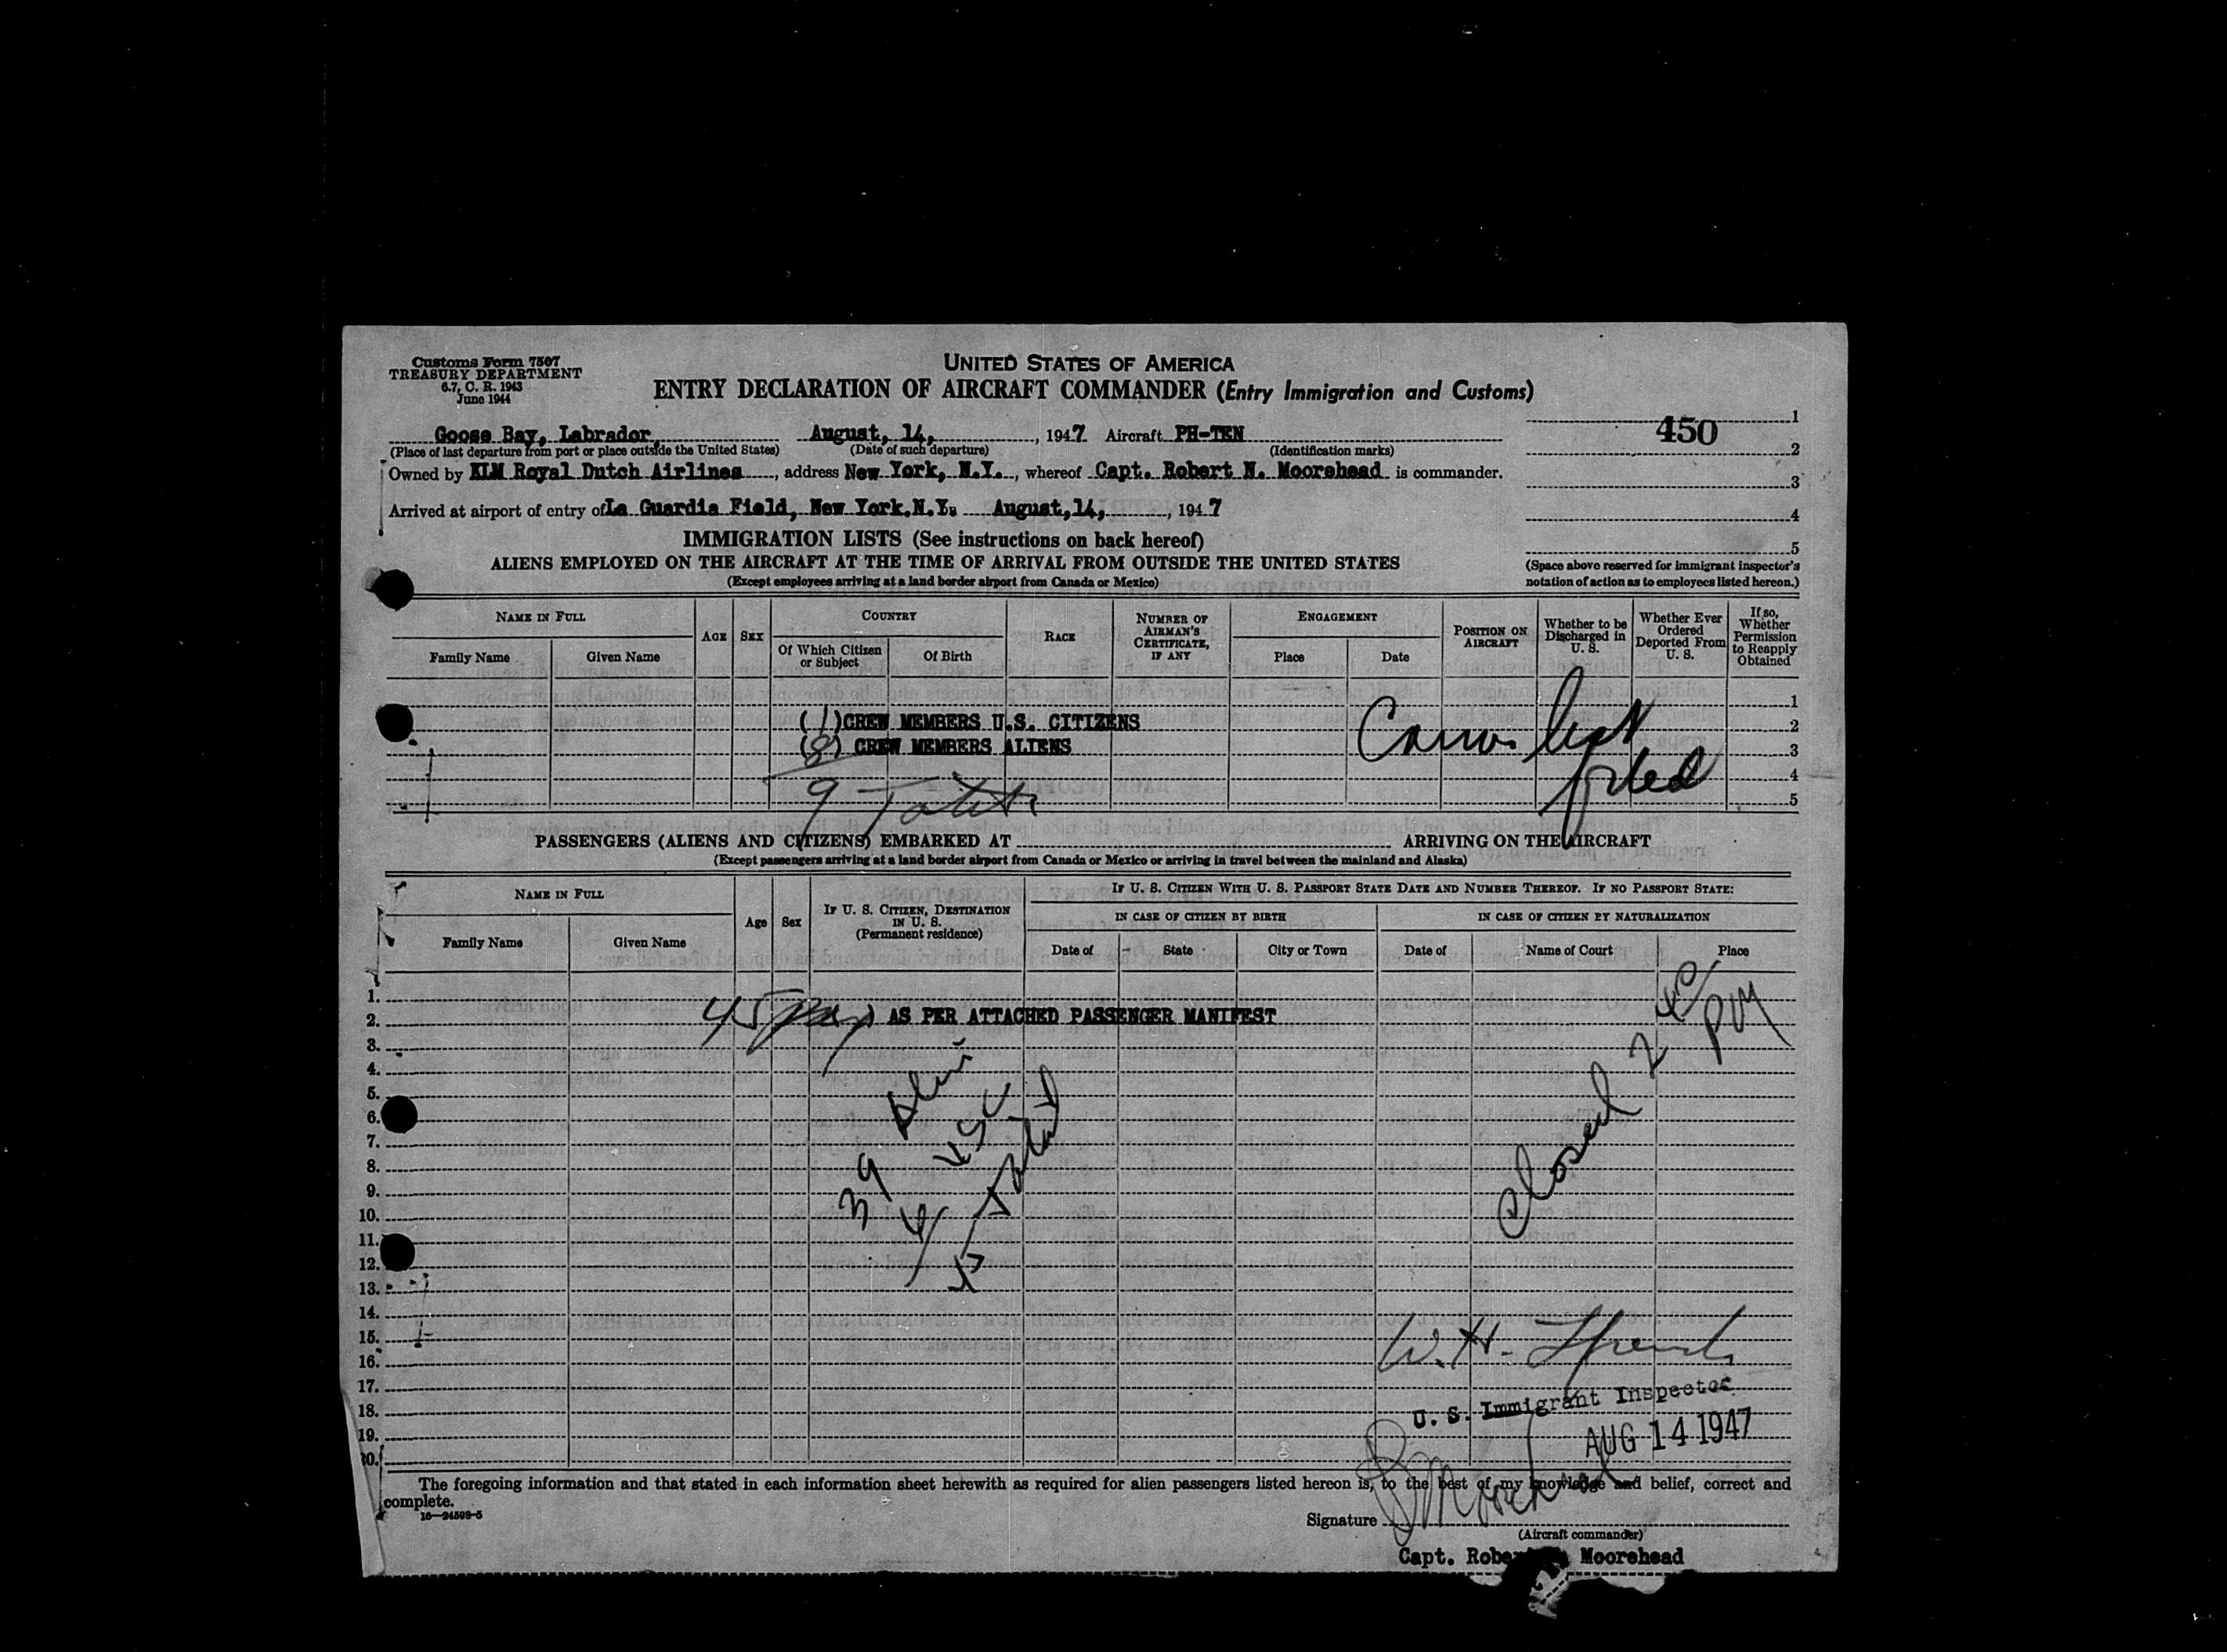 Customs Form 7507
TREASURY DEPARTMENT
6.7, C. R. 1943
June 1944
UNITED STATES OF AMERICA
ENTRY DECLARATION OF AIRCRAFT COMMANDER (Entry Immigration and Customs)
Goose Bay, Labrador, August, 14, , 1947 Aircraft PH-TEN
(Place of last departure from port or place outside the United States) (Date of such departure) (Identification marks)
Owned by KLM Royal Dutch Airlines , address New York, N.Y. , whereof Capt. Robert N. Moorehead is commander.
Arrived at airport of entry of La Guardia Field, New York.N.Y. August,14, , 1947
450
1
2
3
4
5
(Space above reserved for immigrant inspector's
notation of action as to employees listed hereon.)
IMMIGRATION LISTS (See instructions on back hereof)
ALIENS EMPLOYED ON THE AIRCRAFT AT THE TIME OF ARRIVAL FROM OUTSIDE THE UNITED STATES
(Except employees arriving at a land border airport from Canada or Mexico)
NAME IN FULL
Family Name
Given Name
AGE
SEX
COUNTRY
Of Which Citizen or Subject
Of Birth
RACE
NUMBER OF AIRMAN'S CERTIFICATE, IF ANY
ENGAGEMENT
Place
Date
POSITION ON AIRCRAFT
Whether to be Discharged in U. S.
Whether Ever Ordered Deported From U. S.
If so, Whether Permission to Reapply Obtained
1
(1) CREW MEMBERS U.S. CITIZENS 2
(8) CREW MEMBERS ALIENS 3
4
9 Total 5
list
filed
PASSENGERS (ALIENS AND CITIZENS) EMBARKED AT ARRIVING ON THE AIRCRAFT
(Except passengers arriving at a land border airport from Canada or Mexico or arriving in travel between the mainland and Alaska)
NAME IN FULL
Family Name
Given Name
Age
Sex
IF U. S. CITIZEN, DESTINATION IN U. S.
(Permanent residence)
IF U. S. CITIZEN WITH U. S. PASSPORT STATE DATE AND NUMBER THEREOF. IF NO PASSPORT STATE:
IN CASE OF CITIZEN BY BIRTH
Date of
State
City or Town
IN CASE OF CITIZEN BY NATURALIZATION
Date of
Name of Court
Place
1.
2. 45 ) AS PER ATTACHED PASSENGER MANIFEST
3.
4.
5.
6.
7.
8.
9.
10.
11.
12.
13.
14.
15.
16.
17.
18.
19.
20.
39
6 USC
45 Total
Closed 2 40 PM
W.H.
U. S. Immigrant Inspector
AUG 14 1947
The foregoing information and that stated in each information sheet herewith as required for alien passengers listed hereon is, to the best of my knowledge and belief, correct and
complete.
16—24598-5
Signature
(Aircraft commander)
Capt. Moorehead